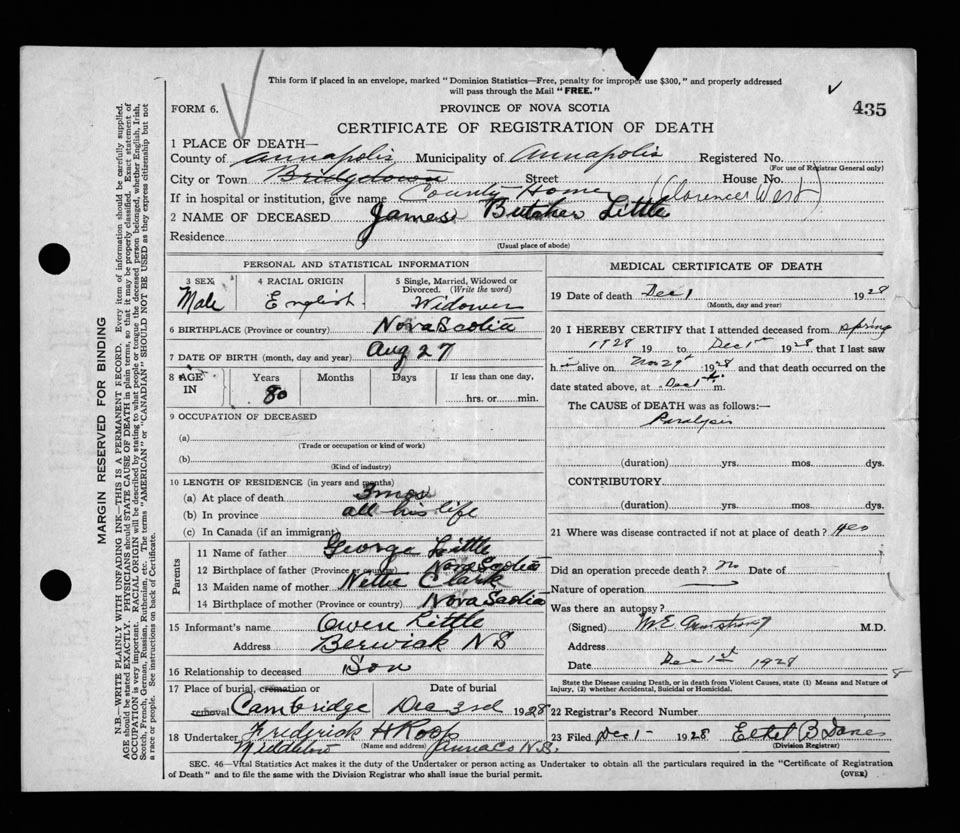 This form if placed in an envelope, marked "Dominion Statistics—Free, penalty for improper use $300," and properly addressed
will pass through the Mail "FREE."
FORM 6.
PROVINCE OF NOVA SCOTIA
435
CERTIFICATE OF REGISTRATION OF DEATH
1 PLACE OF DEATH—
County of Annapolis Municipality of Annapolis Registered No.
(For use of Registrar General only)
City or Town Bridgetown Street House No.
If in hospital or institution, give name County Home (Clarence West)
2 NAME OF DECEASED James Butcher Little
Residence
(Usual place of abode)
PERSONAL AND STATISTICAL INFORMATION
3 SEX 4 RACIAL ORIGIN 5 Single, Married, Widowed or
Divorced. (Write the word)
Male English Widower
6 BIRTHPLACE (Province or country) Nova Scotia
7 DATE OF BIRTH (month, day and year) Aug 27
8 AGE IN Years Months Days If less than one day,
80 hrs. or min.
9 OCCUPATION OF DECEASED
(a)
(Trade or occupation or kind of work)
(b)
(Kind of industry)
10 LENGTH OF RESIDENCE (in years and months)
(a) At place of death 3 mos
(b) In province all his life
(c) In Canada (if an immigrant)
Parents
11 Name of father George Little
12 Birthplace of father (Province or country) Nova Scotia
13 Maiden name of mother Nettie Clark
14 Birthplace of mother (Province or country) Nova Scotia
15 Informant's name Owen Little
Address Berwick N S
16 Relationship to deceased Son
17 Place of burial, cremation or Date of burial
removal Cambridge Dec 3rd 1928
18 Undertaker Frederick H Roop
Middleton (Name and address) Anna Co N.S.
MEDICAL CERTIFICATE OF DEATH
19 Date of death Dec 1 1928
(Month, day and year)
20 I HEREBY CERTIFY that I attended deceased from Spring
1928 19 to Dec 1st 1928 that I last saw
h im alive on Nov 29th 1928 and that death occurred on the
date stated above, at Dec 1st m.
The CAUSE of DEATH was as follows:—
Paralysis
(duration) yrs. mos. dys.
CONTRIBUTORY.
(duration) yrs. mos. dys.
21 Where was disease contracted if not at place of death? Yes
Did an operation precede death? no Date of
Nature of operation
Was there an autopsy?
(Signed) M.E. Armstrong M.D.
Address
Date Dec 1st 1928
State the Disease causing Death, or in death from Violent Causes, state (1) Means and Nature of
Injury, (2) whether Accidental, Suicidal or Homicidal.
22 Registrar's Record Number
23 Filed Dec 1- 1928 Ethel B
(Division Registrar)
SEC. 46—Vital Statistics Act makes it the duty of the Undertaker or person acting as Undertaker to obtain all the particulars required in the "Certificate of Registration
of Death" and to file the same with the Division Registrar who shall issue the burial permit.
(OVER)
MARGIN RESERVED FOR BINDING
N.B.—WRITE PLAINLY WITH UNFADING INK—THIS IS A PERMANENT RECORD. Every item of information should be carefully supplied.
AGE should be stated EXACTLY. PHYSICIANS should STATE CAUSE OF DEATH in plain terms, so that it may be properly classified. Exact statement of
OCCUPATION is very important. RACIAL ORIGIN will be described by stating to what people or tongue the deceased person belonged, whether English, Irish,
Scotch, French, German, Russian, Ruthenian, etc. The terms "AMERICAN" or "CANADIAN" SHOULD NOT BE USED as they express citizenship but not
a race or people. See instructions on back of Certificate.